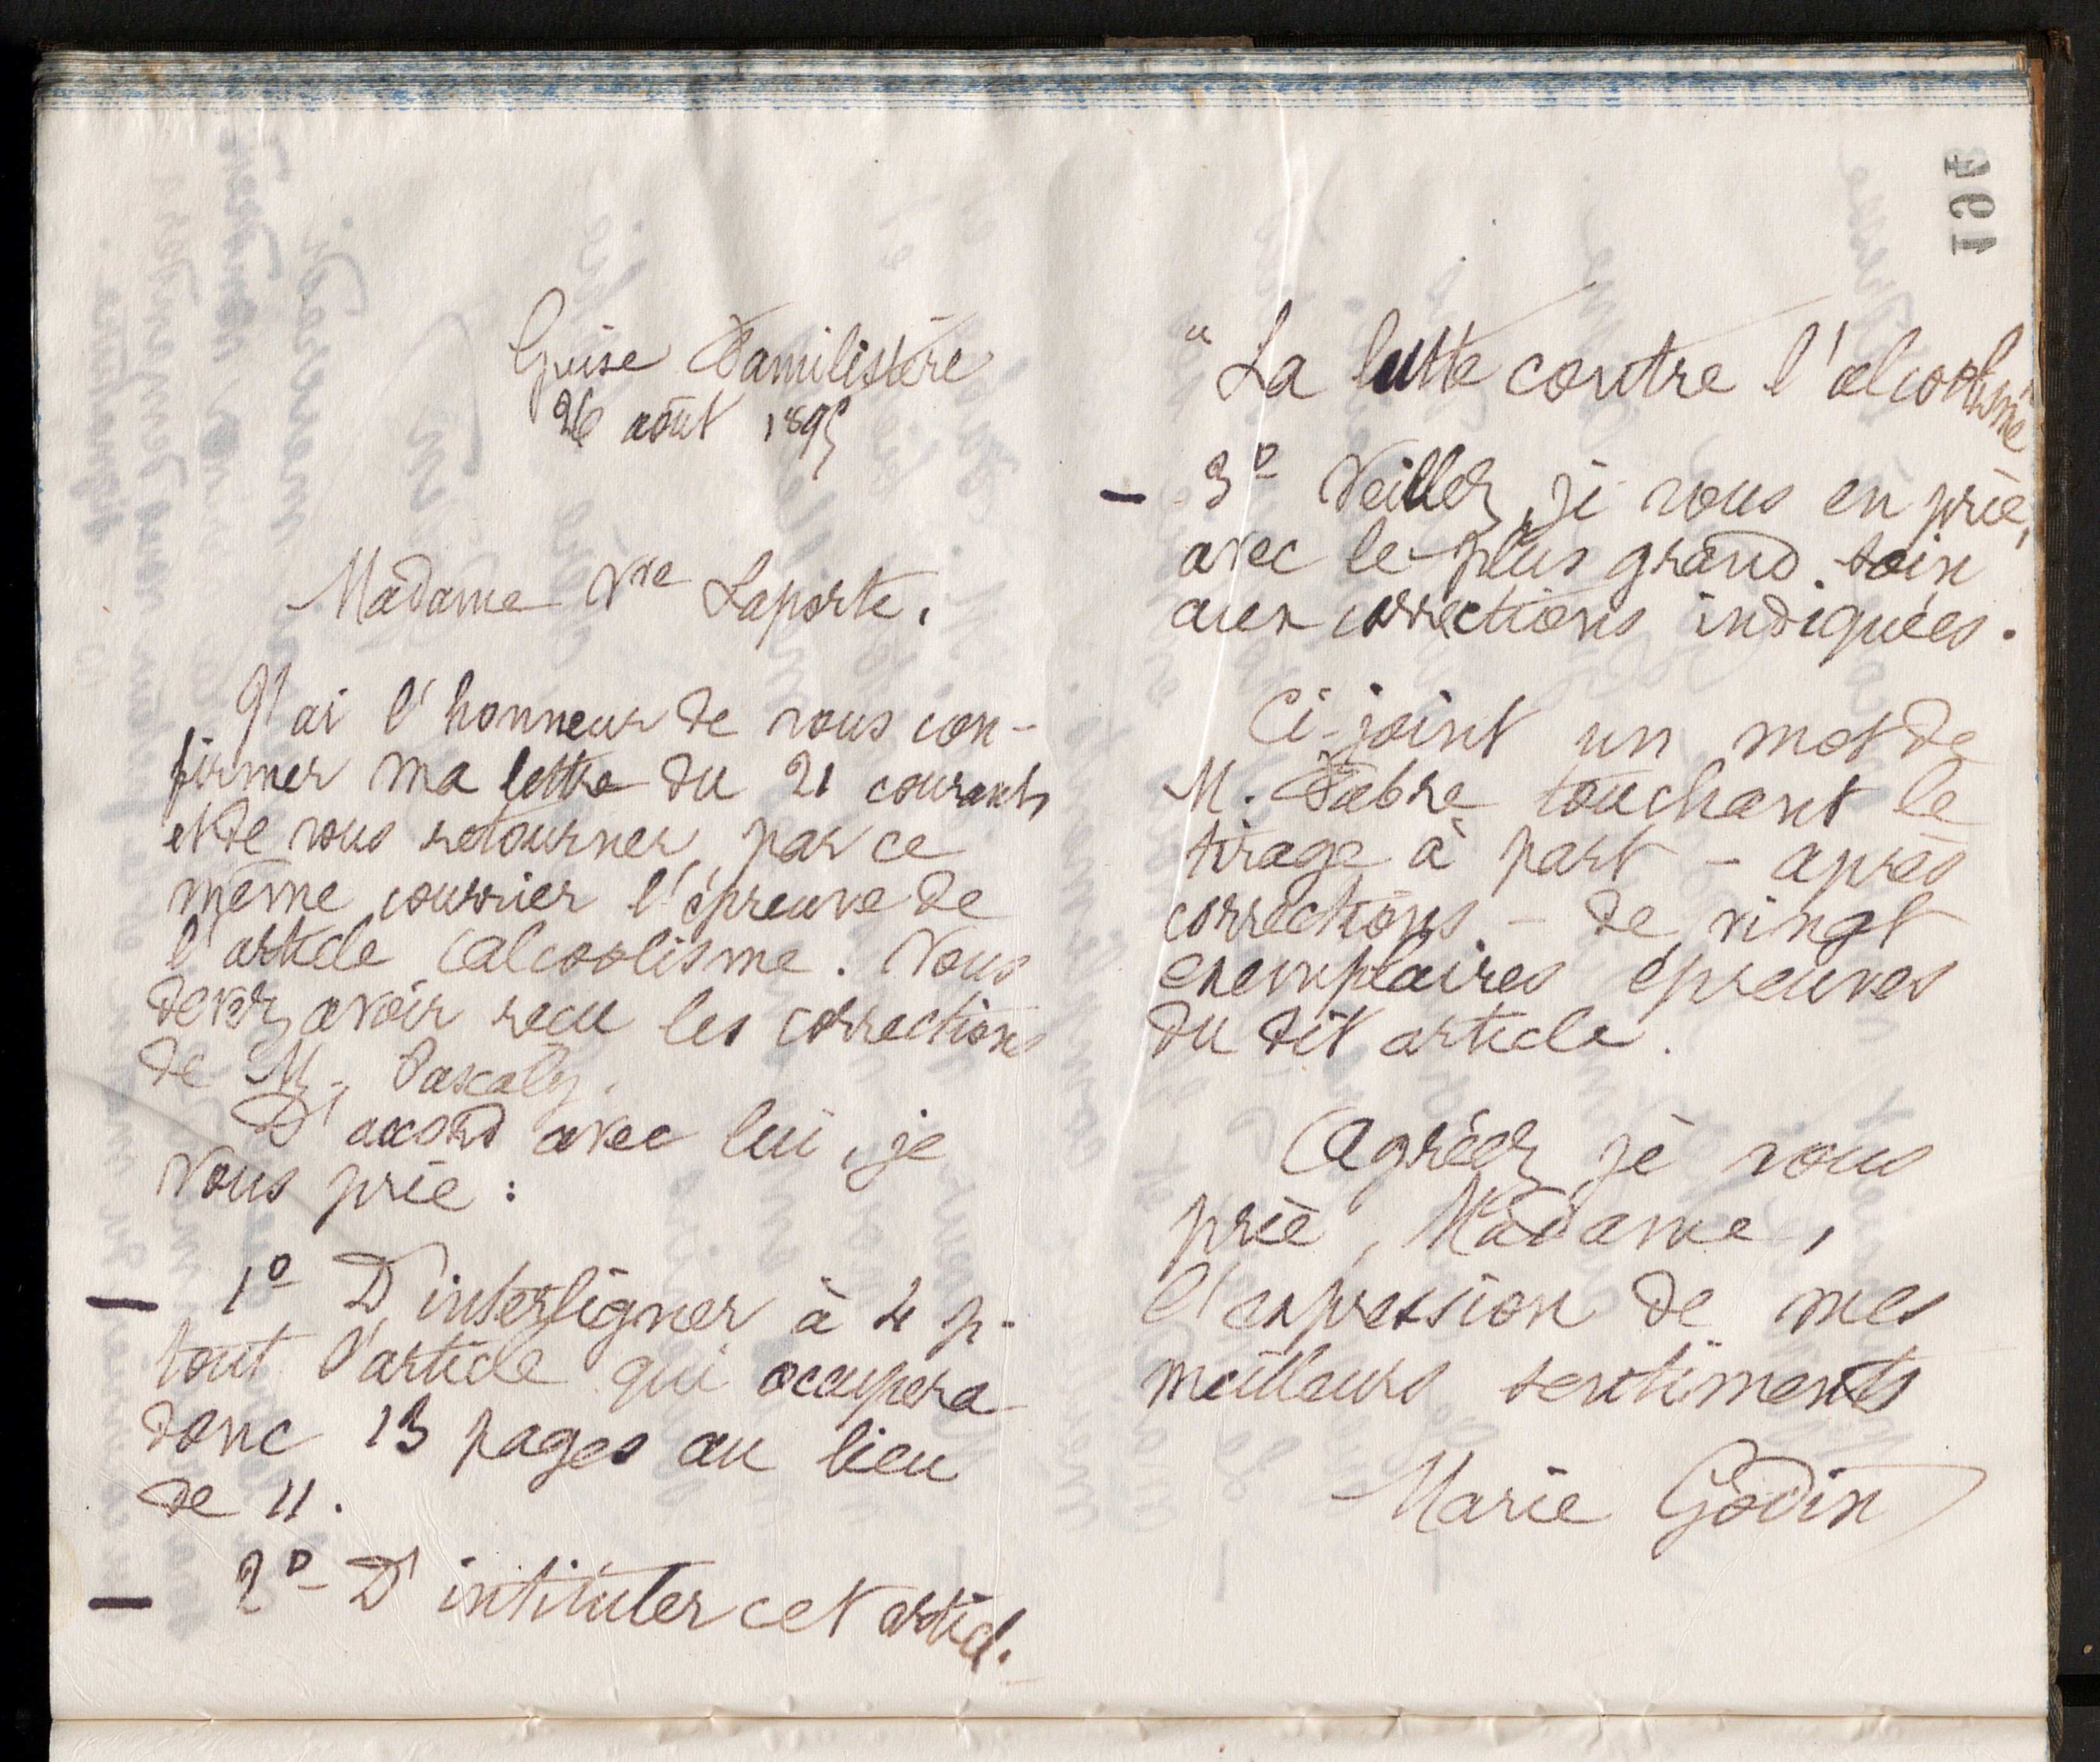 194
Guise Familistère
26 août 1895
Madame Vve Laporte,
J'ai l'honneur de vous con-
firmer ma lettre du 21 courant,
et de vous retourner, par ce
même courrier l'épreuve de
l'article alcoolisme. Vous
devez avoir reçu les corrections
de M. Pascaly.
D'accord avec lui, je
vous prie :
— 1º D'interligner à 4 p.
tout l'article qui occupera
donc 13 pages au lieu
de 11.
— 2º D'intituler cet articl.
"La lutte contre l'alcoolisme"
— 3º Veillez, je vous en prie,
avec le plus grand soin
aux corrections indiquées.
Ci-joint un mot de
M. Fabre touchant le
tirage à part - après
corrections - de vingt
exemplaires épreuves
du dit article.
Agréez, je vous
prie, Madame,
l'expression de mes
meilleurs sentiments
Marie Godin